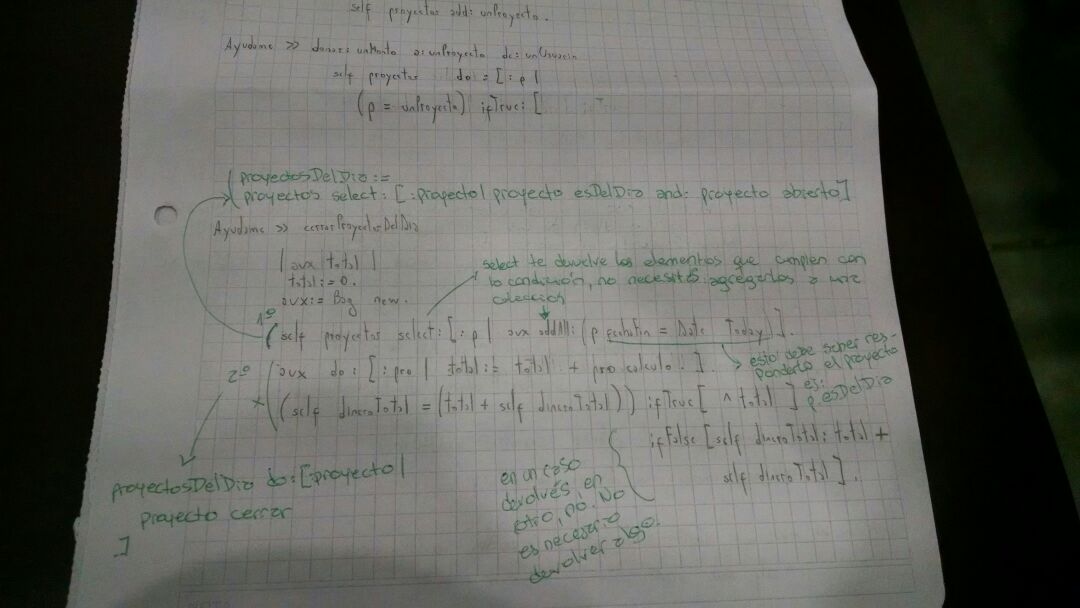 self proyectos add: unProyecto.
Ayudame >> donar: unMonto a: unProyecto de: unUsuario
self proyectos do: [:p |
(p = unProyecto) ifTrue: [
proyectosDelDia :=
proyectos select: [:proyecto | proyecto esDelDia and: proyecto abierto]
Ayudame >> cerrarProyectosDelDia
| aux total |
total := 0.
aux := Bag new.
select te devuelve los elementos que cumplen con
la condición, no necesitás agregarlos a una
colección
1º (self proyectos select: [:p | aux addAll: (p fechaFin = Date Today)].
esto debe saber res-
ponderlo el proyecto
es:
p esDelDia
2º (aux do: [:pro | total := total + pro calculo.].
* ((self dineroTotal = (total + self dineroTotal)) ifTrue [^ total]
ifFalse [self dineroTotal: total +
self dineroTotal].
en un caso
devolvés, en
otro, no. No
es necesario
devolver algo.
proyectosDelDia do: [:proyecto |
proyecto cerrar
]